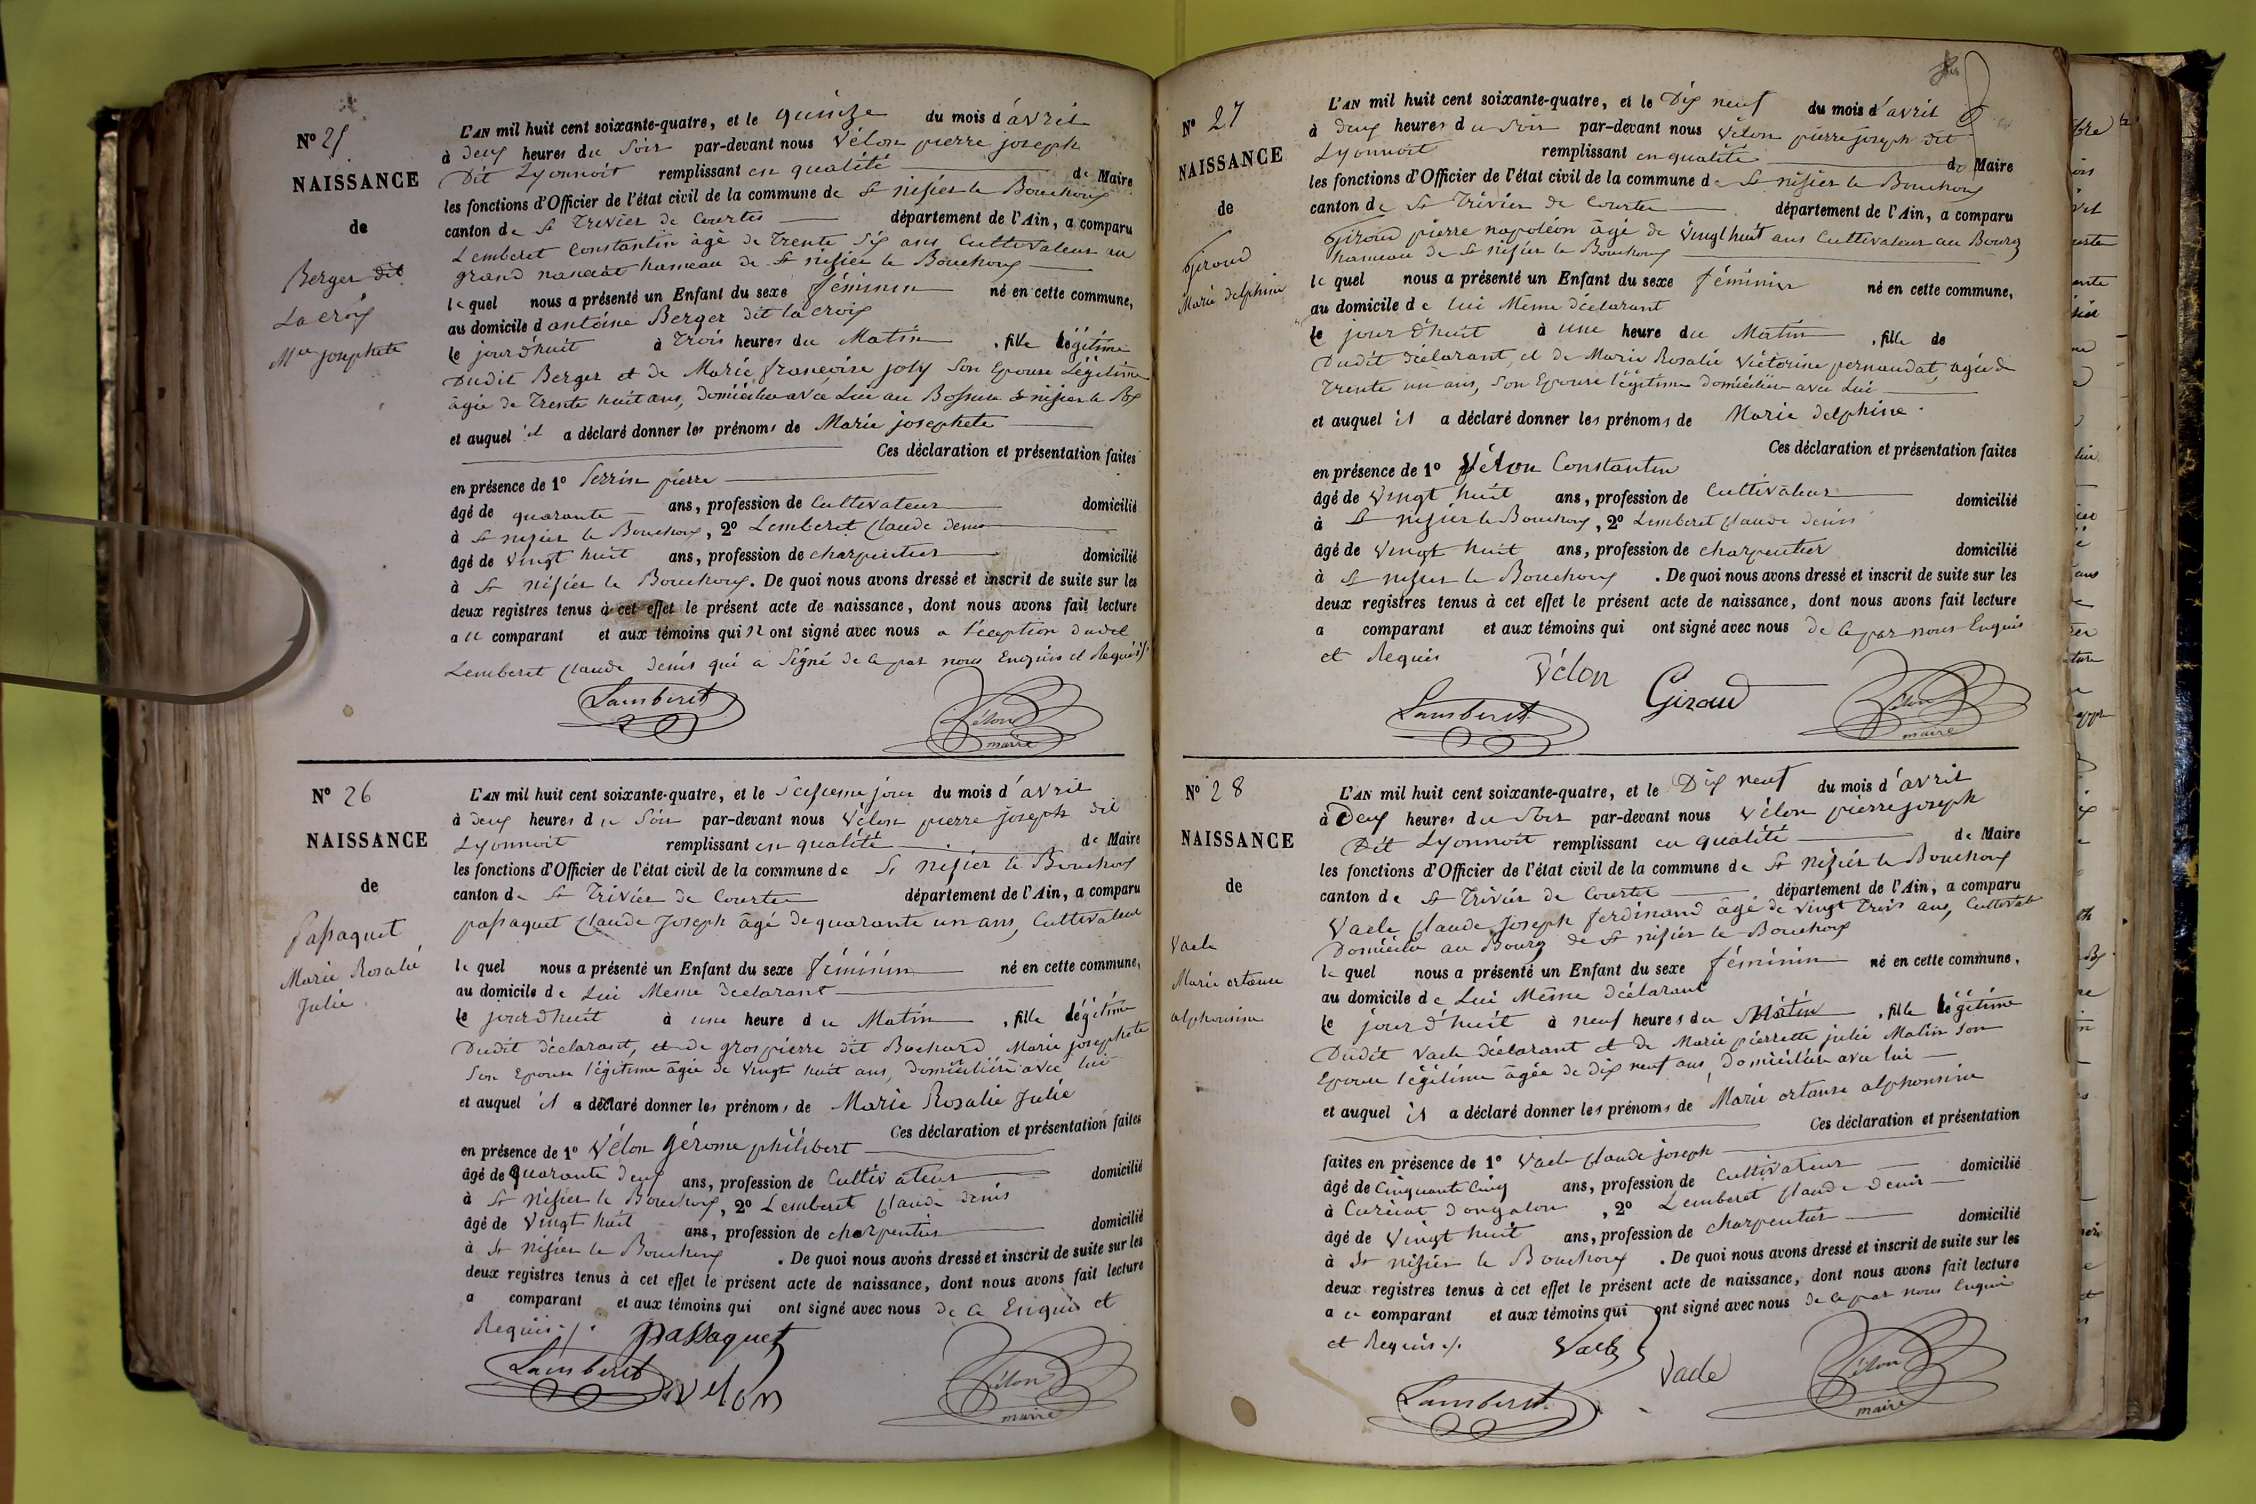 N° 25
NAISSANCE
de
Berger dit
La croix
Marie josephete
L'AN mil huit cent soixante-quatre, et le quinze du mois d'avril
à deux heures du Soir par-devant nous Vélon pierre joseph
Dit Lyonnoit remplissant en qualité de Maire
les fonctions d'Officier de l'état civil de la commune de St nisier le Bouchoux
canton de St Trivier de Courtes département de l'Ain, a comparu
Lemberet Constantin âgé de Trente Six ans Cultivateur au
grand hameau de St nisier le Bouchoux
le quel nous a présenté un Enfant du sexe féminin né en cette commune,
au domicile d antoine Berger dit la croix
le jour d'huit à Trois heures du Matin , fille légitime
Dudit Berger et de Marie françoise joly Son Epouse Légitime
âgée de Trente huit ans, Domiciliée avec Lui au St nisier le Bx
et auquel il a déclaré donner les prénoms de Marie josephete
Ces déclaration et présentation faites
en présence de 1° Perrin pierre
âgé de quarante ans, profession de Cultivateur domicilié
à St nisier le Bouchoux, 2° Lemberet Claude denis
âgé de vingt huit ans, profession de charpentier domicilié
à St nisier le Bouchoux. De quoi nous avons dressé et inscrit de suite sur les
deux registres tenus à cet effet le présent acte de naissance, dont nous avons fait lecture
a u comparant et aux témoins qui n ont signé avec nous a l'éception dudit
Lemberet Claude denis qui a Signé de ce par nous Enquis et Requis
Lamberet
Vélon
maire
N° 26
NAISSANCE
de
Passaquet
Marie Rosalie
Julie
L'AN mil huit cent soixante-quatre, et le Seizieme jour du mois d'avril
à deux heures du Soir par-devant nous Vélon pierre joseph dit
Lyonnoit remplissant en qualité de Maire
les fonctions d'Officier de l'état civil de la commune de St nisier le Bouchoux
canton de St Trivier de Courtes département de l'Ain, a comparu
passaquet Claude Joseph âgé de quarante un ans, Cultivateur
le quel nous a présenté un Enfant du sexe féminin né en cette commune,
au domicile de Lui Meme déclarant
le jour d'huit à une heure du Matin , fille légitime
Dudit déclarant, et de gros pierre dit Bochard Marie josephete
Son Epouse légitime âgée de vingt huit ans, domiciliée avec lui
et auquel il a déclaré donner les prénoms de Marie Rosalie Julie
Ces déclaration et présentation faites
en présence de 1° Vélon gérome philibert
âgé de quarante deux ans, profession de Cultivateur domicilié
à St nisier le Bouchoux, 2° Lemberet Claude denis
âgé de vingt huit ans, profession de charpentier domicilié
à St nisier le Bouchoux. De quoi nous avons dressé et inscrit de suite sur les
deux registres tenus à cet effet le présent acte de naissance, dont nous avons fait lecture
a comparant et aux témoins qui ont signé avec nous de ce Enquis et
Requis ./. passaquet
Lamberet vélon
Vélon
maire
N° 27
NAISSANCE
de
Giroud
Marie delphine
L'AN mil huit cent soixante-quatre, et le Dix neuf du mois d'avril
à deux heures du Soir par-devant nous Vélon pierre joseph dit
Lyonnoit remplissant en qualité de Maire
les fonctions d'Officier de l'état civil de la commune de St nisier le Bouchoux
canton de St Trivier de Courtes département de l'Ain, a comparu
Giroud pierre napoléon âgé de vingt huit ans Cultivateur au Bourg
hameau de St nisier le Bouchoux
le quel nous a présenté un Enfant du sexe féminin né en cette commune,
au domicile de lui Même déclarant
le jour d'huit à une heure du Matin , fille de
Dudit déclarant, et de Marie Rosalie Victorine pernaudat, agée de
Trente un ans, Son Epouse légitime domiciliée avec Lui
et auquel il a déclaré donner les prénoms de Marie delphine.
Ces déclaration et présentation faites
en présence de 1° Vélon Constantin
âgé de Vingt huit ans, profession de Cultivateur domicilié
à St nisier le Bouchoux, 2° Lemberet Claude denis
âgé de vingt huit ans, profession de charpentier domicilié
à St nisier le Bouchoux. De quoi nous avons dressé et inscrit de suite sur les
deux registres tenus à cet effet le présent acte de naissance, dont nous avons fait lecture
a comparant et aux témoins qui ont signé avec nous de ce par nous Enquis
et Requis Vélon
Lamberet Giroud
Vélon
maire
N° 28
NAISSANCE
de
Vacle
Marie ortanse
alphonsine
L'AN mil huit cent soixante-quatre, et le Dix neuf du mois d'avril
à Deux heures du Soir par-devant nous Vélon pierre joseph
Dit Lyonnoit remplissant en qualité de Maire
les fonctions d'Officier de l'état civil de la commune de St nisier le Bouchoux
canton de St Trivier de Courtes département de l'Ain, a comparu
Vacle Claude Joseph ferdinand âgé de vingt Trois ans, Cultivat
Domicilié au Bourg de St nisier le Bouchoux
le quel nous a présenté un Enfant du sexe féminin né en cette commune,
au domicile de Lui Même déclarant
le jour d'huit à neuf heures du Matin , fille légitime
Dudit Vacle déclarant et de Marie pierrette julie Matin Son
Epouse légitime âgée de dix neuf ans, domiciliée avec lui
et auquel il a déclaré donner les prénoms de Marie ortanse alphonsine
Ces déclaration et présentation
faites en présence de 1° Vacle Claude joseph
âgé de Cinquante Cinq ans, profession de Cultivateur domicilié
à Curciat dongalon, 2° Lemberet Claude denis
âgé de vingt huit ans, profession de charpentier domicilié
à St nisier le Bouchoux. De quoi nous avons dressé et inscrit de suite sur les
deux registres tenus à cet effet le présent acte de naissance, dont nous avons fait lecture
a u comparant et aux témoins qui ont signé avec nous de ce par nous Enquis
et Requis ./. Vacle
Vacle
Lamberet
Vélon
maire